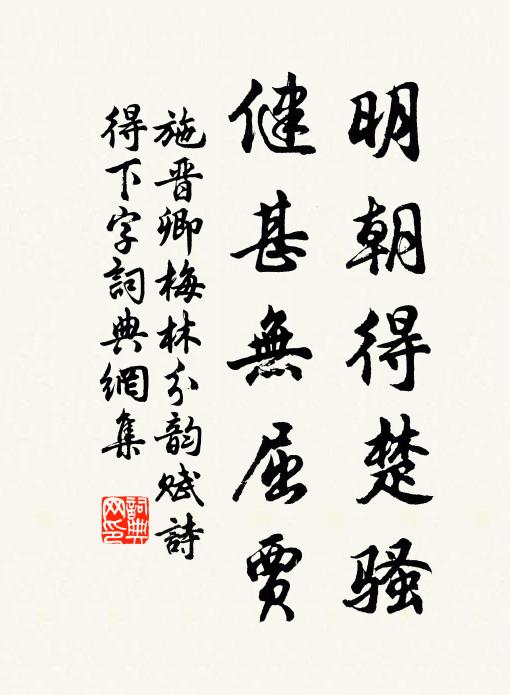 明朝得楚骚
健甚無屈賈
施晋卿梅林分韵赋詩
得下字詞典網集
詞典
网印